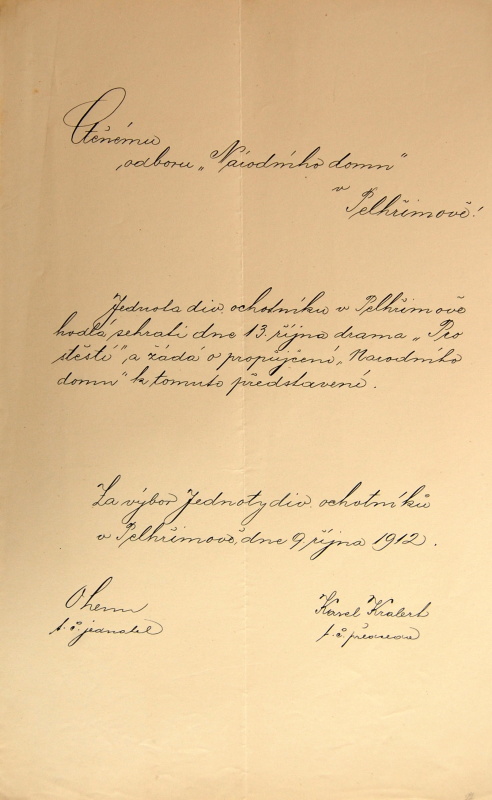 Ctěnému
odboru „Národního domu"
v
Pelhřimově!
Jednota div. ochotníků v Pelhřimově
hodlá sehrati dne 13. října drama „Pro
štěstí", a žádá o propůjčení „Národního
domu" k tomuto představení.
Za výbor Jednoty div. ochotníků
v Pelhřimově, dne 9. října 1912.
t. č. jednatel
Karel Kralert
t. č. předseda